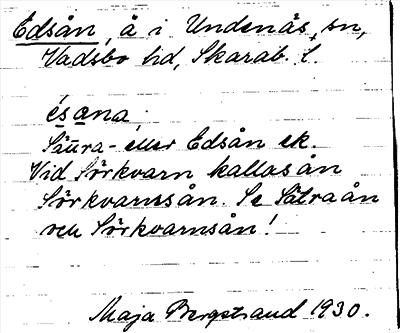 Edsån, å i Undenäs, sn,
Vadsbo hd, Skarab. l.
ésana
Sätra- eller Edsån ek.
Vid Sörkvarn kallas ån
Sörkvarnsån. Se Sätraån
och Sörkvarnsån!
Maja Bergstrand 1930.